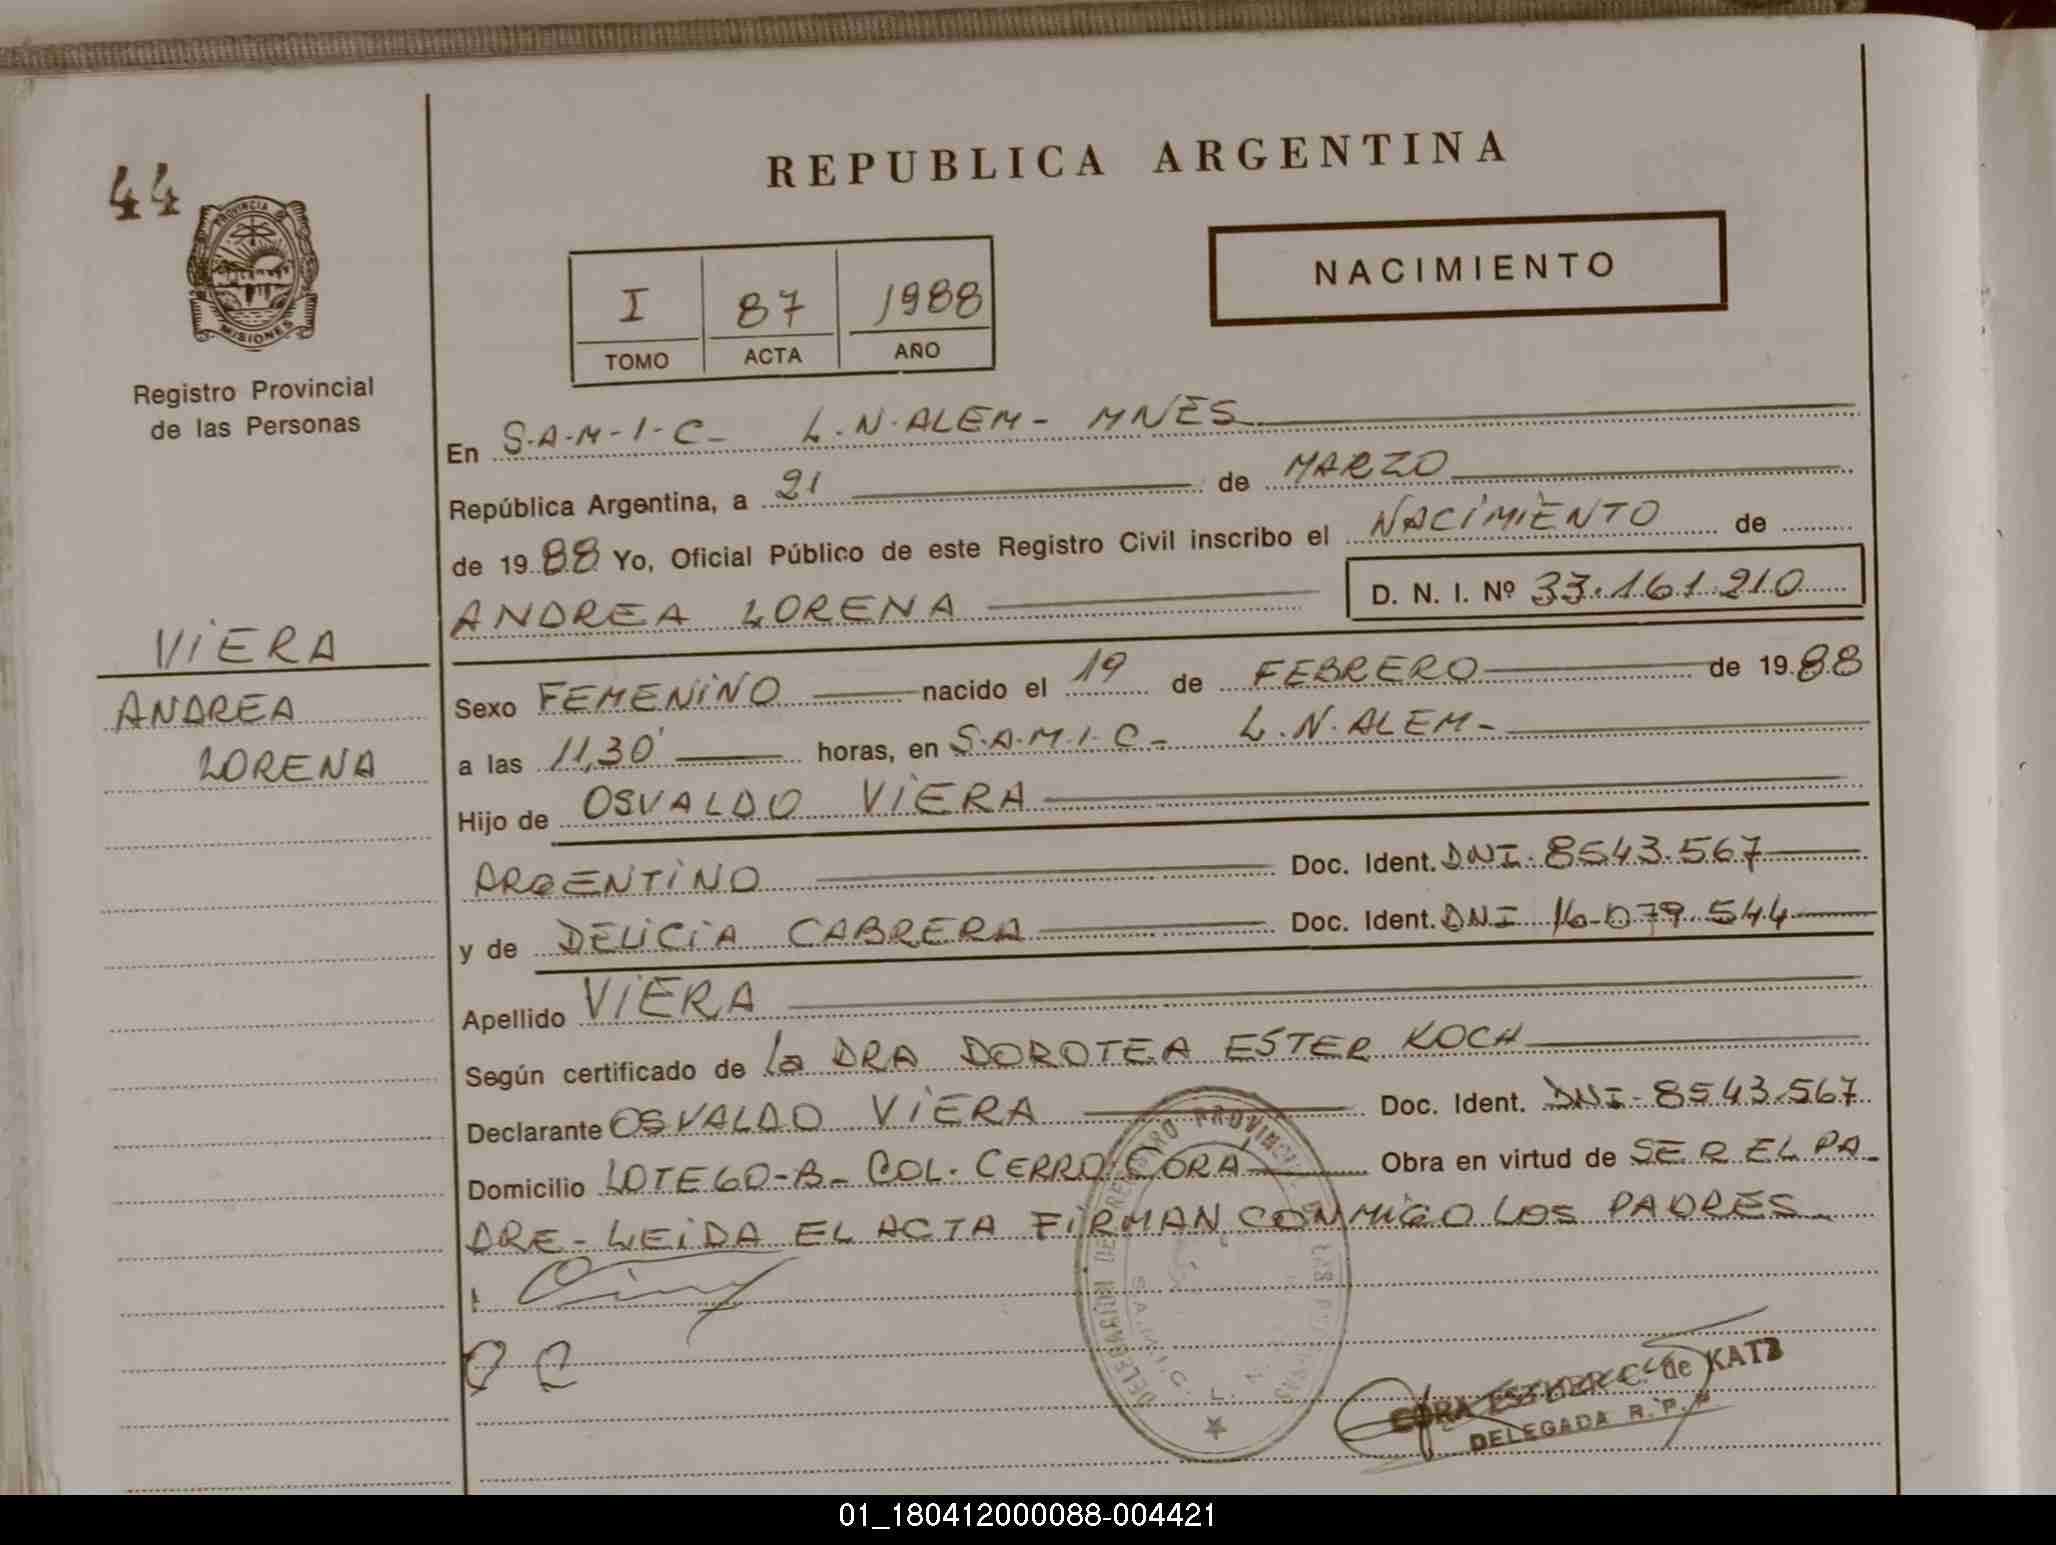 44
PROVINCIA DE
MISIONES
Registro Provincial
de las Personas
VIERA
ANDREA
LORENA
REPUBLICA ARGENTINA
NACIMIENTO
I 87 1988
TOMO ACTA AÑO
En S.A.M.I.C- L.N.ALEM- MNES
República Argentina, a 21 de MARZO
de 1988 Yo, Oficial Público de este Registro Civil inscribo el NACIMIENTO de
ANDREA LORENA D. N. I. Nº 33.161.210
Sexo FEMENINO nacido el 19 de FEBRERO de 1988
a las 11,30' horas, en S.A.M.I.C- L.N.ALEM-
Hijo de OSVALDO VIERA
ARGENTINO Doc. Ident. DNI-8543.567
y de DELICIA CABRERA Doc. Ident. DNI 16-079.544
Apellido VIERA
Según certificado de la DRA DOROTEA ESTER KOCH
Declarante OSVALDO VIERA Doc. Ident. DNI-8543.567
Domicilio LOTE 60-B- COL. CERRO CORA Obra en virtud de SER EL PA-
DRE- LEIDA EL ACTA FIRMAN CONMIGO LOS PADRES-
DELEGACIÓN DEL REGISTRO PROVINCIAL DE LAS
S.A.M.I.C. L.
C. de KATZ
DELEGADA R.P.P.
01_180412000088-004421